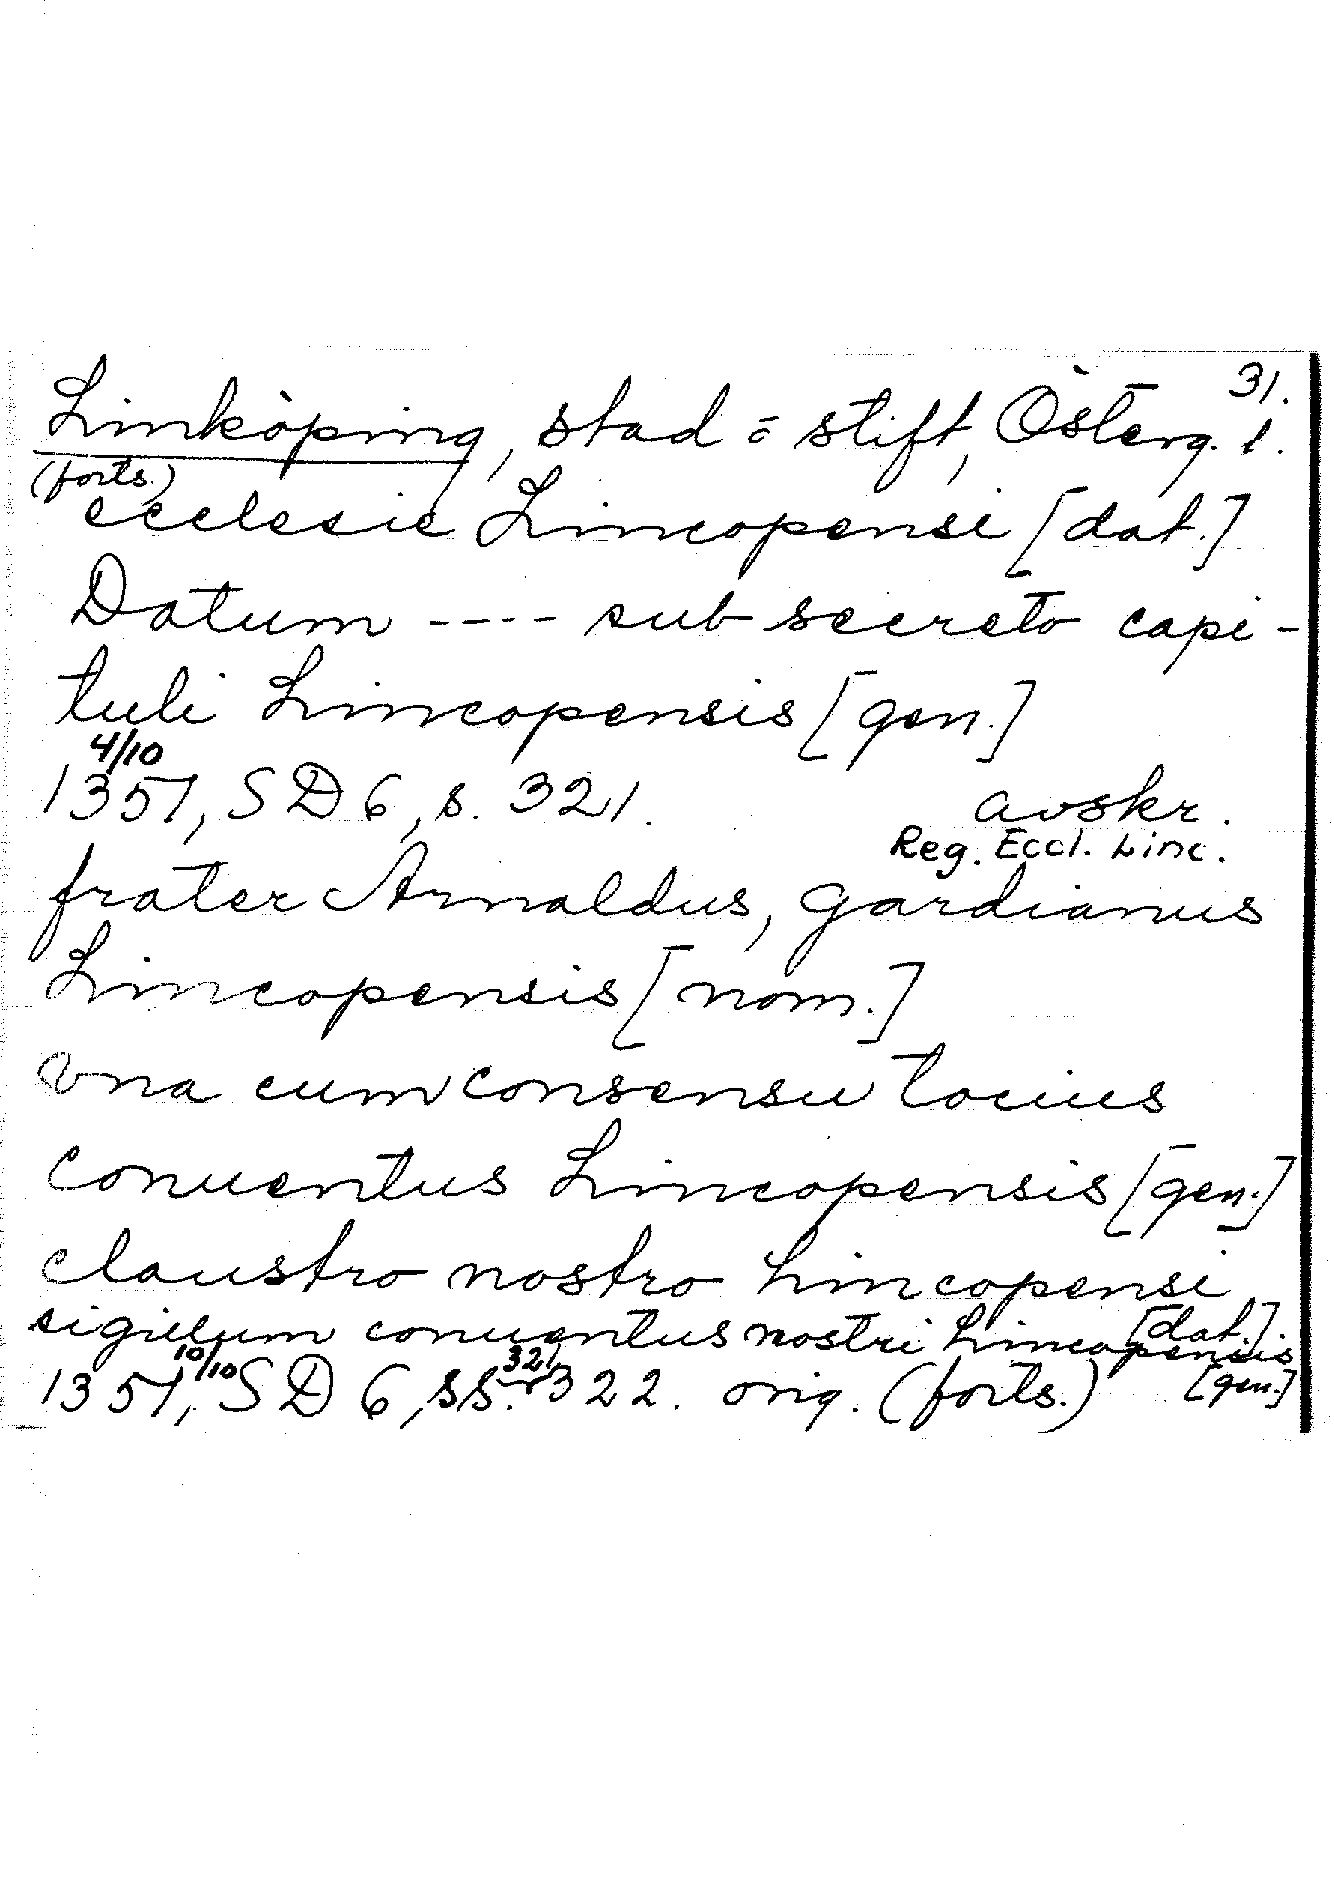 31.
Linköping, stad o stift, Österg. l.
(forts.)
ecclesie Lincopensi [dat.]
Datum ---- sub secreto capi-
tuli Lincopensis [gen.]
4/10
1351, SD 6, s. 321. avskr.
Reg. Eccl. Linc.
frater Arnaldus, gardianus
Lincopensis [nom.]
vna cum consensu tocius
conuentus Lincopensis [gen.]
claustro nostro Lincopensi
[dat.]
sigillum conuentus nostri Lincopensis
[gen.]
10/10 321
1351, SD 6, ss. 322. orig. (forts.)